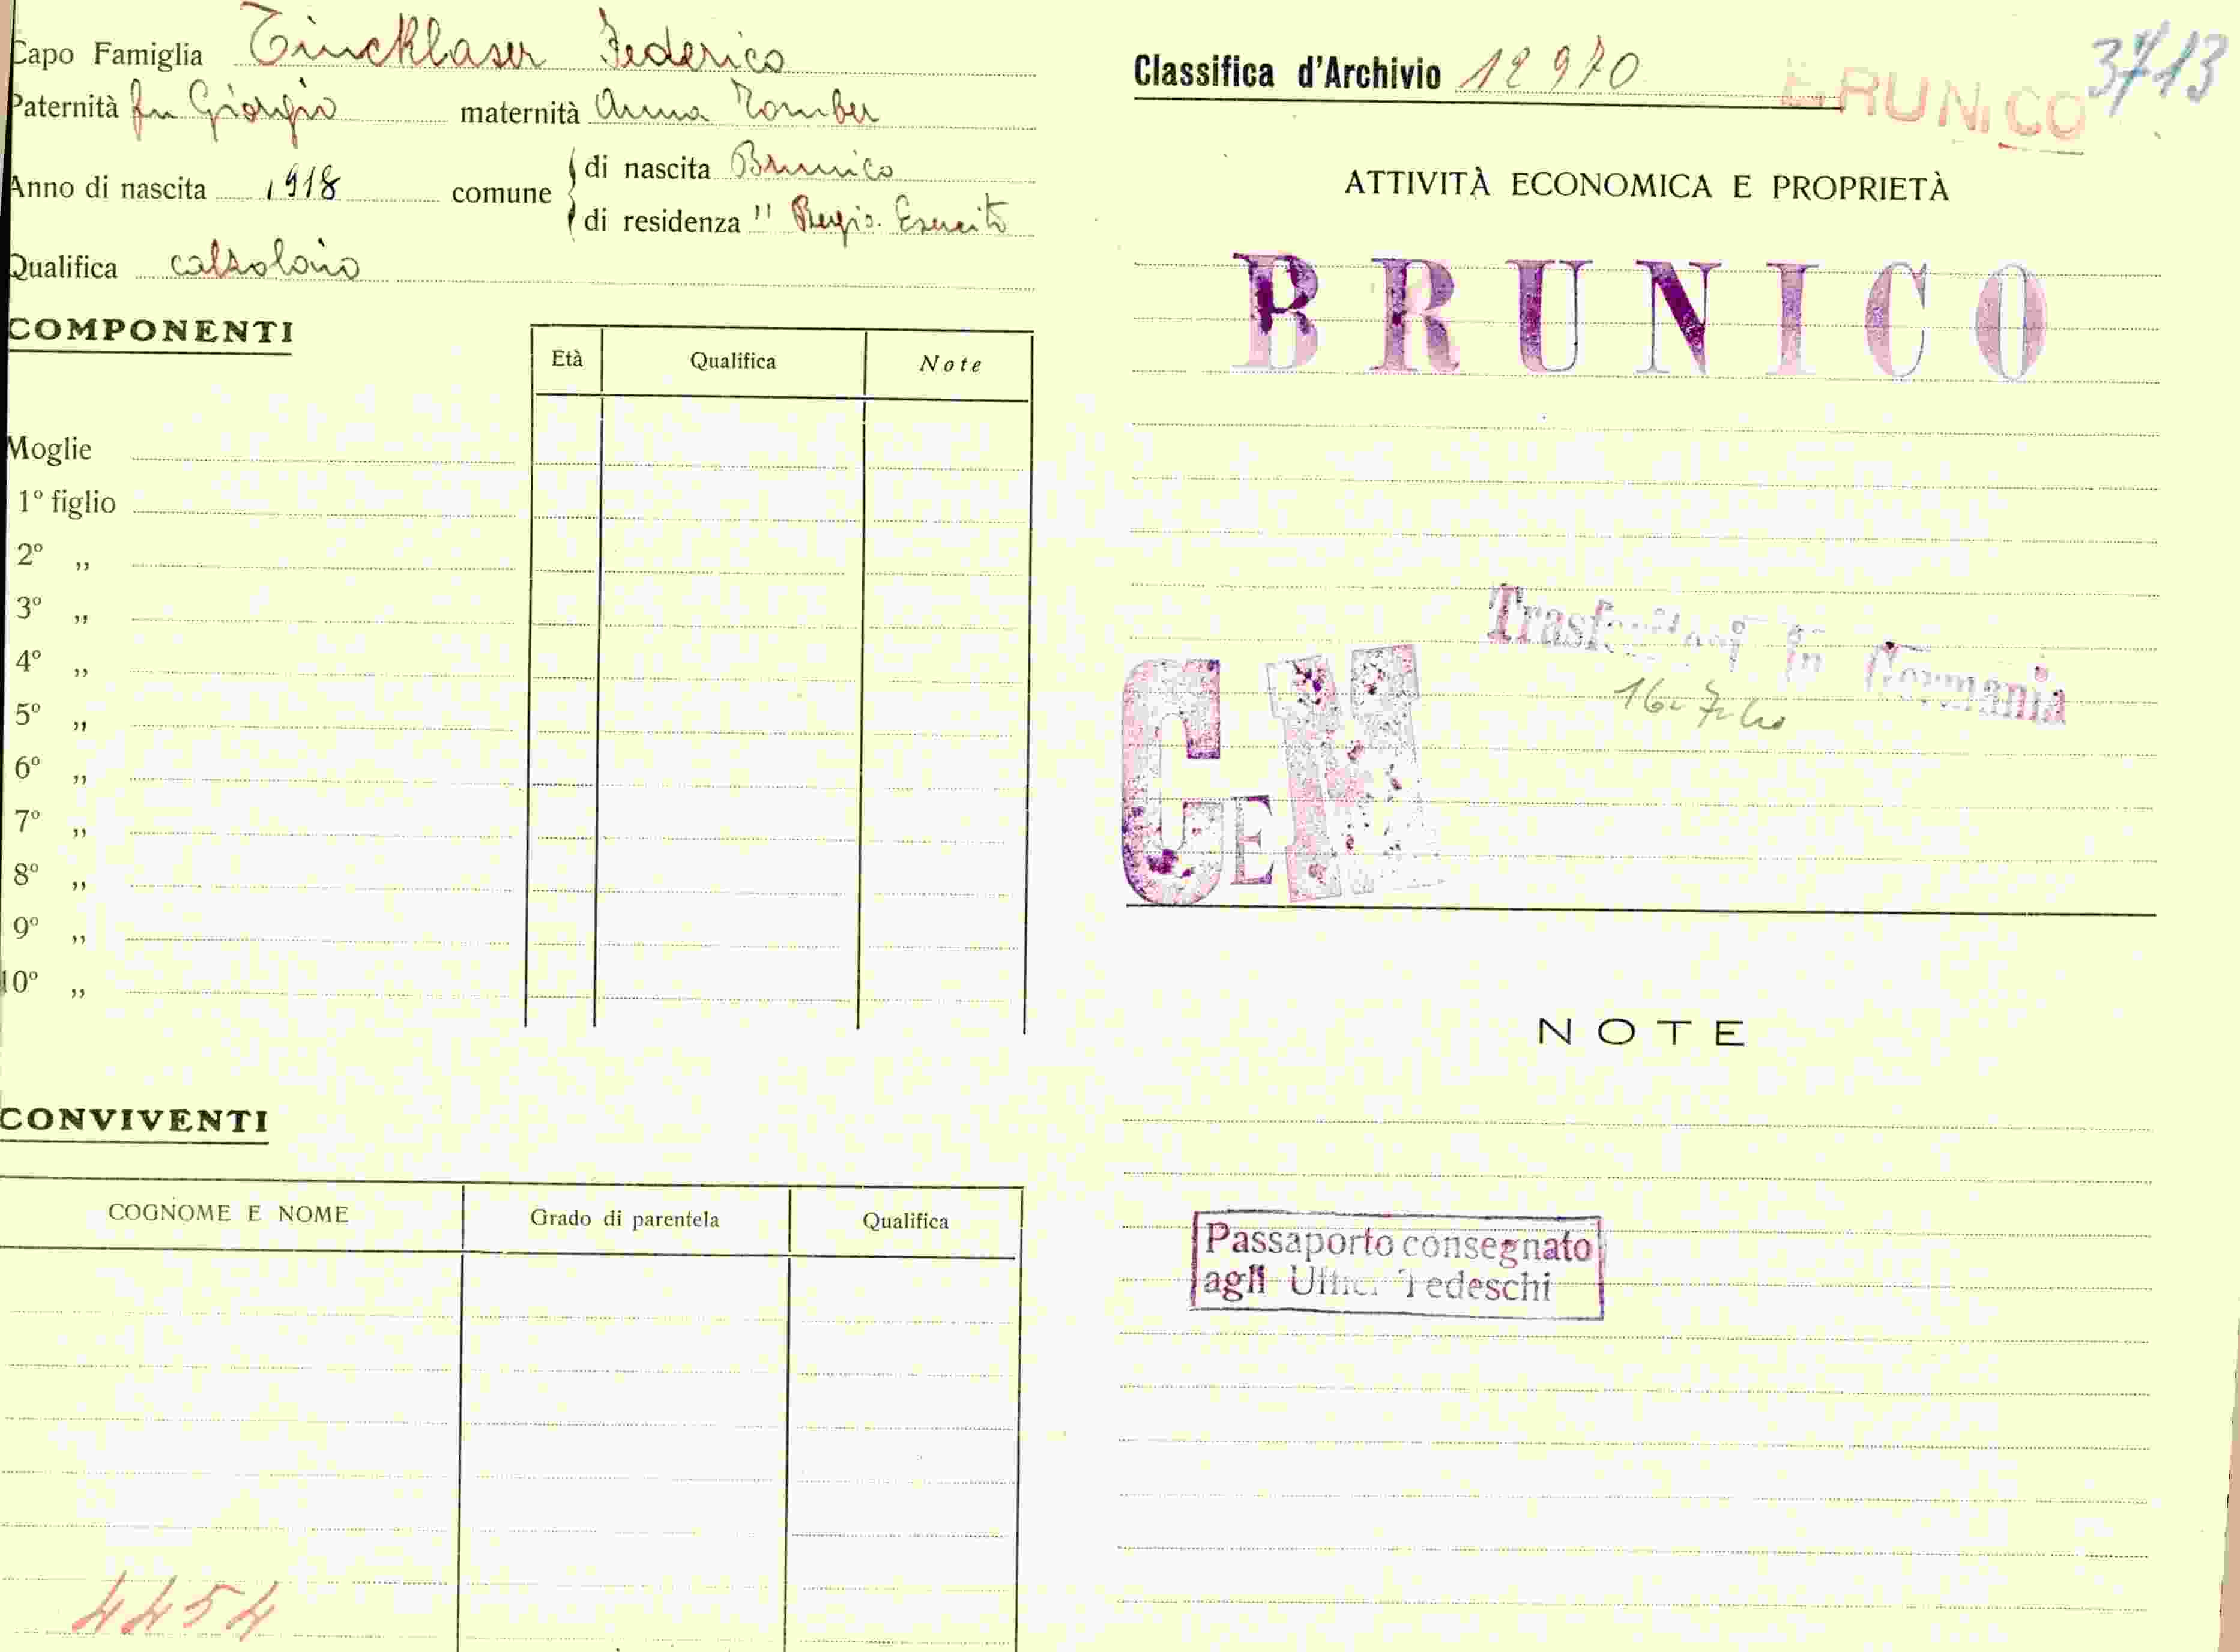 Capo Famiglia Tincklaser Federico
Paternità fu Giorgio maternità Anna Tomber
Anno di nascita 1918 comune di nascita Brunico
di residenza " Regio. Esercito
Qualifica calzolaio
COMPONENTI
Età Qualifica Note
Moglie
1º figlio
2º ,,
3º ,,
4º ,,
5º ,,
6º ,,
7º ,,
8º ,,
9º ,,
10º ,,
CONVIVENTI
COGNOME E NOME Grado di parentela Qualifica
4454
Classifica d'Archivio 12970
BRUNICO
3713
ATTIVITÀ ECONOMICA E PROPRIETÀ
BRUNICO
in
GE
NOTE
Passaporto consegnato
agli Tedeschi